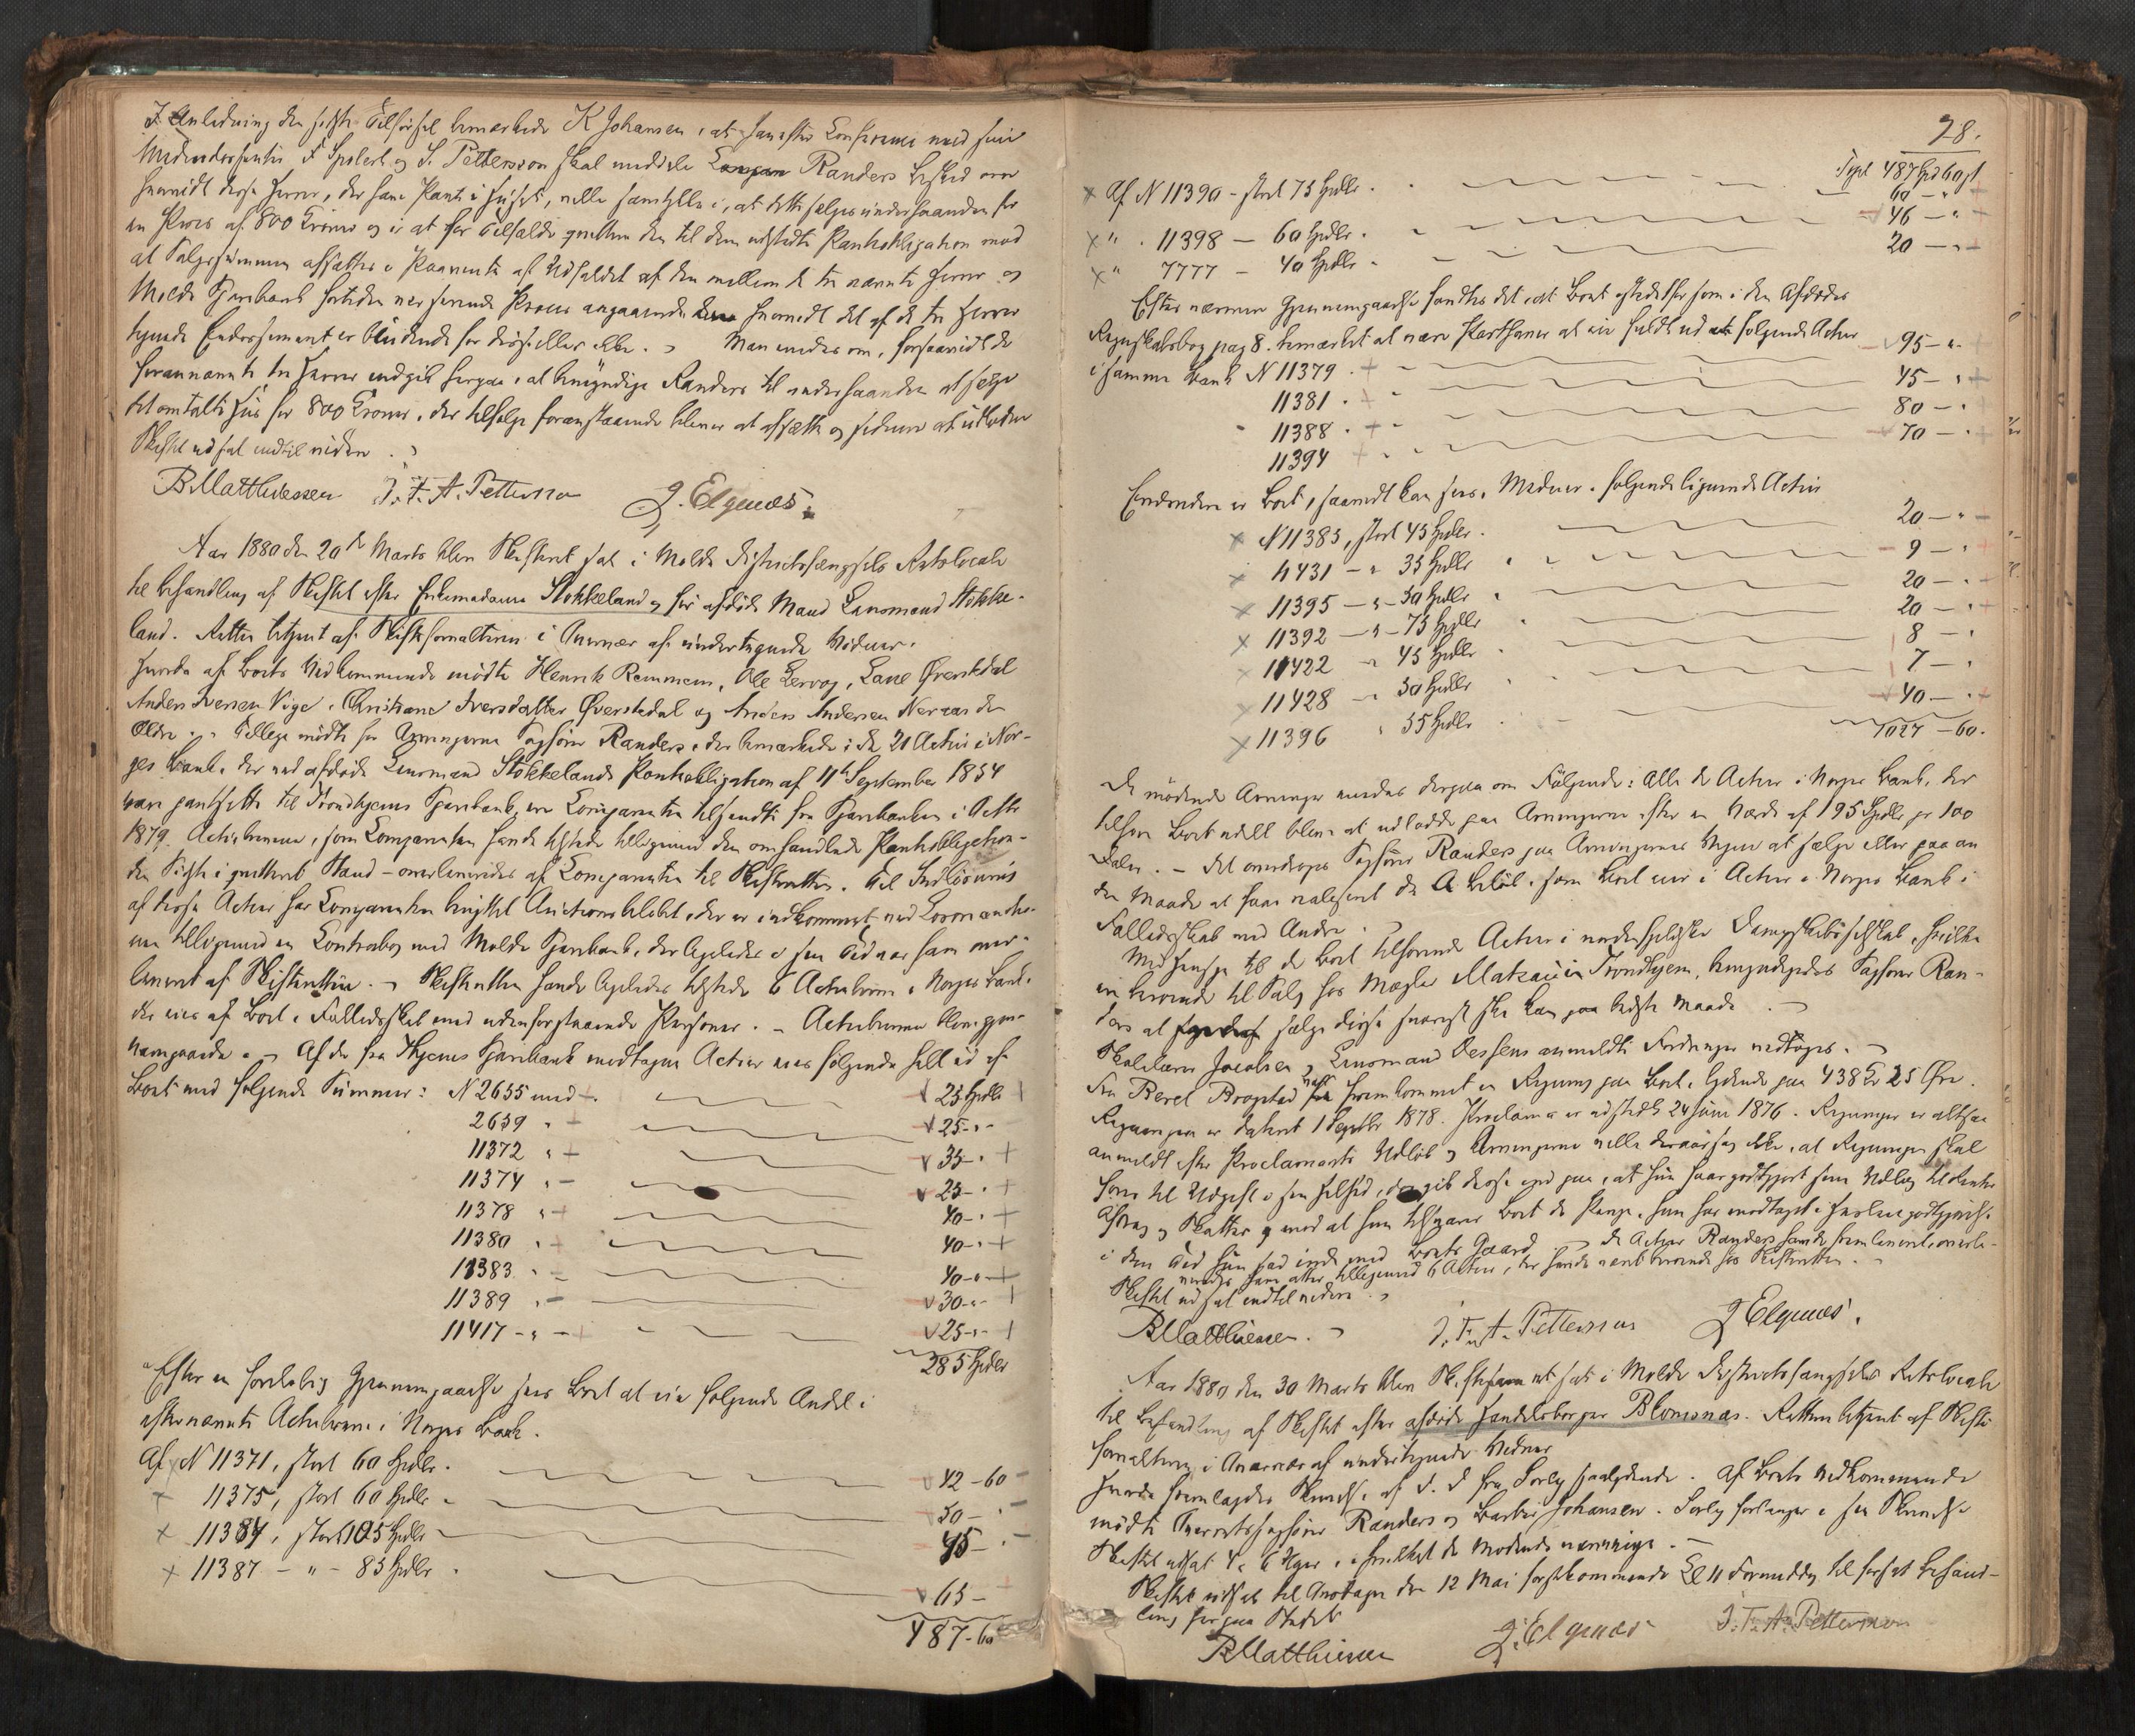 I Anledning den sidste Tilførsel bemærkede K Johansen, at han efter Conference med sine
Medendossenter F Spolert og S. Pettersson skal meddele Randers Besked om
hvorvidt disse Herrer, der have Pant i Huset, ville samtykke i, at dette sælges underhaanden for
en Priis af 800 Kroner og i at for Tilfælde qvittere den til dem udstedte Pantobligation mod
at Salgssummen afsættes i Paavente af Udfaldet af den mellem de tre nævnte Herrer og
Molde Sparebank fortiden værserende Proces angaaende hvorvidt det af de tre Herrer
tegnede Endossement er bindende for disse eller ikke. Man enedes om, forsaavidt de
forannævnte tre Herrer indgik herpaa, at bemyndige Randers til underhaanden at sælge
det omtalte Huus for 800 Kroner, der tilfølge foranstaaende bliver at afsætte og siden at udlodde
Skiftet udsat indtil videre.
B Matthiessen J. F. A. Petterson J. Elgenæs.
Aar 1880 den 20de Marts blev Skifteret sat i Molde Districtsfængsels Retslocale
til Behandling af Skiftet efter Enkemadame Stokkeland og før afdøde Mand Lensmand Stokke-
land. Retten betjent af Skifteforvalteren i Overvær af undertegnede Vidner.
Hvorda af Boets Vedkommende mødte Henrik Remmem, Ole Lervog, Lave Øverstedal
Anders Iversen Vige, Christiane Iversdatter Øverstedal og Anders Andersen Neraas den
Ældre. Tillige mødte for Arvingerne Sagfører Randers, der bemærkede: de 21 Actier i Nor-
ges Bank, der ved afdøde Lensmand Stokkelands Pantobligation af 11te September 1854
vare pantsatte til Trondhjems Sparebank, ere Comparenten tilsendte fra Sparebanken i Octbr
1879. Actiebrevene, som Comparenten havde tilstede tilligemed den omhandlede Pantobligation
den Sidste i qvitteret Stand - overleveredes af Comparenten til Skifteretten. Til Indløsning
af disse Actier har Comparenten benyttet Auctionsbeløbet, der er indkommet ved Lensmandse-
nen tilligemed en Contrabog med Molde Sparebank, der ligeledes i sin Tid var ham over-
leveret af Skifteretten. Skifteretten havde ligeledes tilstede 6 Actiebreve i Norges Bank,
der eies af Boet i Fællesskab med udenforstaaende Personer. Actiebrevene bleve gjen-
nemgaaede. Af de fra Thjems Sparebank modtagne Actier eies følgende helt ud af
Boet med følgende Summer: N 2655 med 25 Spdlr
2659 " 25 - " -
11372 " 35 - "
11374 " 25 - "
11378 " 40 - "
11380 " 40 - "
11383 " 40 - "
11389 " 30 - "
11417 - " - 25 - "
285 Spdlr
Efter en foreløbig Gjennemgaaelse sees Boet at eie følgende Andel i
efternævnte Actiebreve i Norges Bank.
Af N 11371, stort 60 Spdlr. 42 - 60
11375, stort 60 Spdlr. 50 -
11384, stort 105 Spdlr 45 -
11387 - " - 85 Spdlr 65 -
487 - 60
78.
Tspt 487 Spd 60 sk
Af N 11390 - stort 75 Spdlr. 60 - " -
" . 11398 - 60 Spdlr. 46 - " -
" 7777 - 40 Spdlr. 20 - " -
Efter nærmere Gjennemgaaelse fandtes det, at Boet istedetfor som i den Afdødes
Regnskabsbog pag 8. bemærket at være Parthaver at eie fuldt ud følgende Actier
i samme Bank N 11379. 95 - " -
11381. 45 - "
11388. 80 - "
11394 70 - "
Endvidere er Boet, saavidt kan sees, Medeier i følgende lignende Actier
N 11385, stort 45 Spdlr. 20 - "
11431 - " 35 Spdlr 9 - "
11395 - " - 30 Spdlr 20 - "
11392 - " - 75 Spdlr 20 - "
11422 " 45 Spdlr 8 - "
11428 - " 30 Spdlr 7 - "
11396 " 55 Spdlr 40 - "
1027 - 60.
De mødende Arvinger enedes derpaa om Følgende: Alle de Actier i Norges Bank, der
tilhøre Boet udelt bliver at udlodde paa Arvingerne efter en Værdi af 195 Spdlr pr 100
Daler. - Det overdrages Sagfører Randers paa Arvingernes Vegne at sælge eller paa an
den Maade at faae realiseret de Beløb, som Boet eier i Actier i Norges Bank i
Fællesskab med Andre.
Med Hensyn til de Boet tilhørende Actier i nordenfjeldske Dampskibsselskab, hvilke
ere beroende til Salg hos Mægler Matzau i Trondhjem, bemyndigedes Sagfører Ran-
ders at sælge disse snarest ske kan paa bedste Maade.
Skolelærer Jacobsen og Lensmand Dessens anmeldte Fordringer vedtoges.
Fra Beret Bragstad var fremkommet en Regning paa Boet, lydende paa 438 Kr 25 Øre.
Regningen er dateret 1 Septbr 1878. Proclama er udstedt 24 Juni 1876. Regningen er altsaa
anmeldt efter Proclamaets Udløb og Arvingerne ville derover sig ikke, at Regningen skal
komme til Udgift i sin Helhed, dog gik disse ind paa, at hun faar godtgjort sine Udlæg til Renter
Afdrag og Skatter og mod at hun tilsvarer Boet de Penge, hun har modtaget i Husleiegodtgjørelse
i den Tid hun sad inde med Boets Gaard. De Actier Randers havde fremleveret, overle-
veredes ham atter tilligemed 6 Actier, der havde været beroende hos Skifteretten.
Skiftet udsat indtil videre.
B Matthiessen. J. F. A. Petterson J Elgenæs.
Aar 1880 den 30 Marts blev Skifteret sat i Molde Districtsfængsels Retslocale
til Behandling af Skiftet efter afdøde Handelsborger Blomsnæs. Retten betjent af Skifte
forvalteren i Overvær af undertegnede Vidner
Hvorda fremlagdes Skrivelse af d. D fra Sørly saalydende. Af Boets Vedkommende
mødte Overretssagfører Randers og Barber Johansen. Sørly forlanger i sin Skrivelse
Skiftet udsat 4 a 6 Uger, i hvilket de Mødende vare enige.
Skiftet udsat til Onsdagen den 12 Mai førstkommende Kl 11 Formiddag til fortsat Behand-
ling her paa Stedet
B Matthiessen J. Elgenæs J. F. A. Petterson